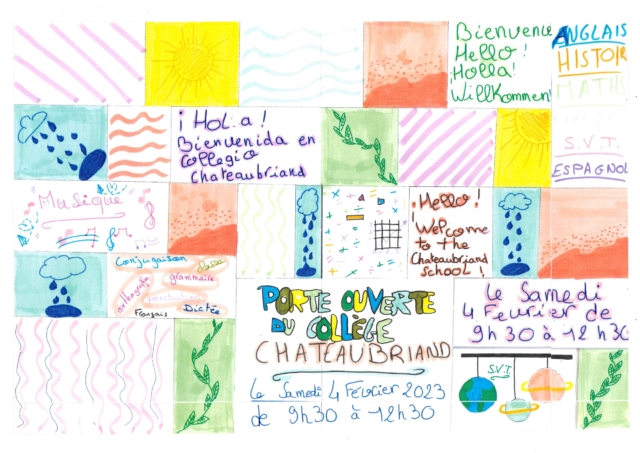 Bienvenue
Hello!
¡Holla!
Willkommen
ANGLAIS
HISTOIR
MATHS
S.V.T.
ESPAGNOL
¡Hol.a!
Bienvenida en
Collegio
Chateaubriand
Musique
¡Hello!
Welcome
to the
Chateaubriand
School!
Conjugaison
classe
grammaire
orthografe
ponctuation
Français
Dictée
PORTE OUVERTE
DU COLLÈGE
CHATEAUBRIAND
Le Samedi 4 Février 2023
de 9h30 à 12h30
Le Samedi
4 Fevrier de
9h30 à 12h30
S.V.T.